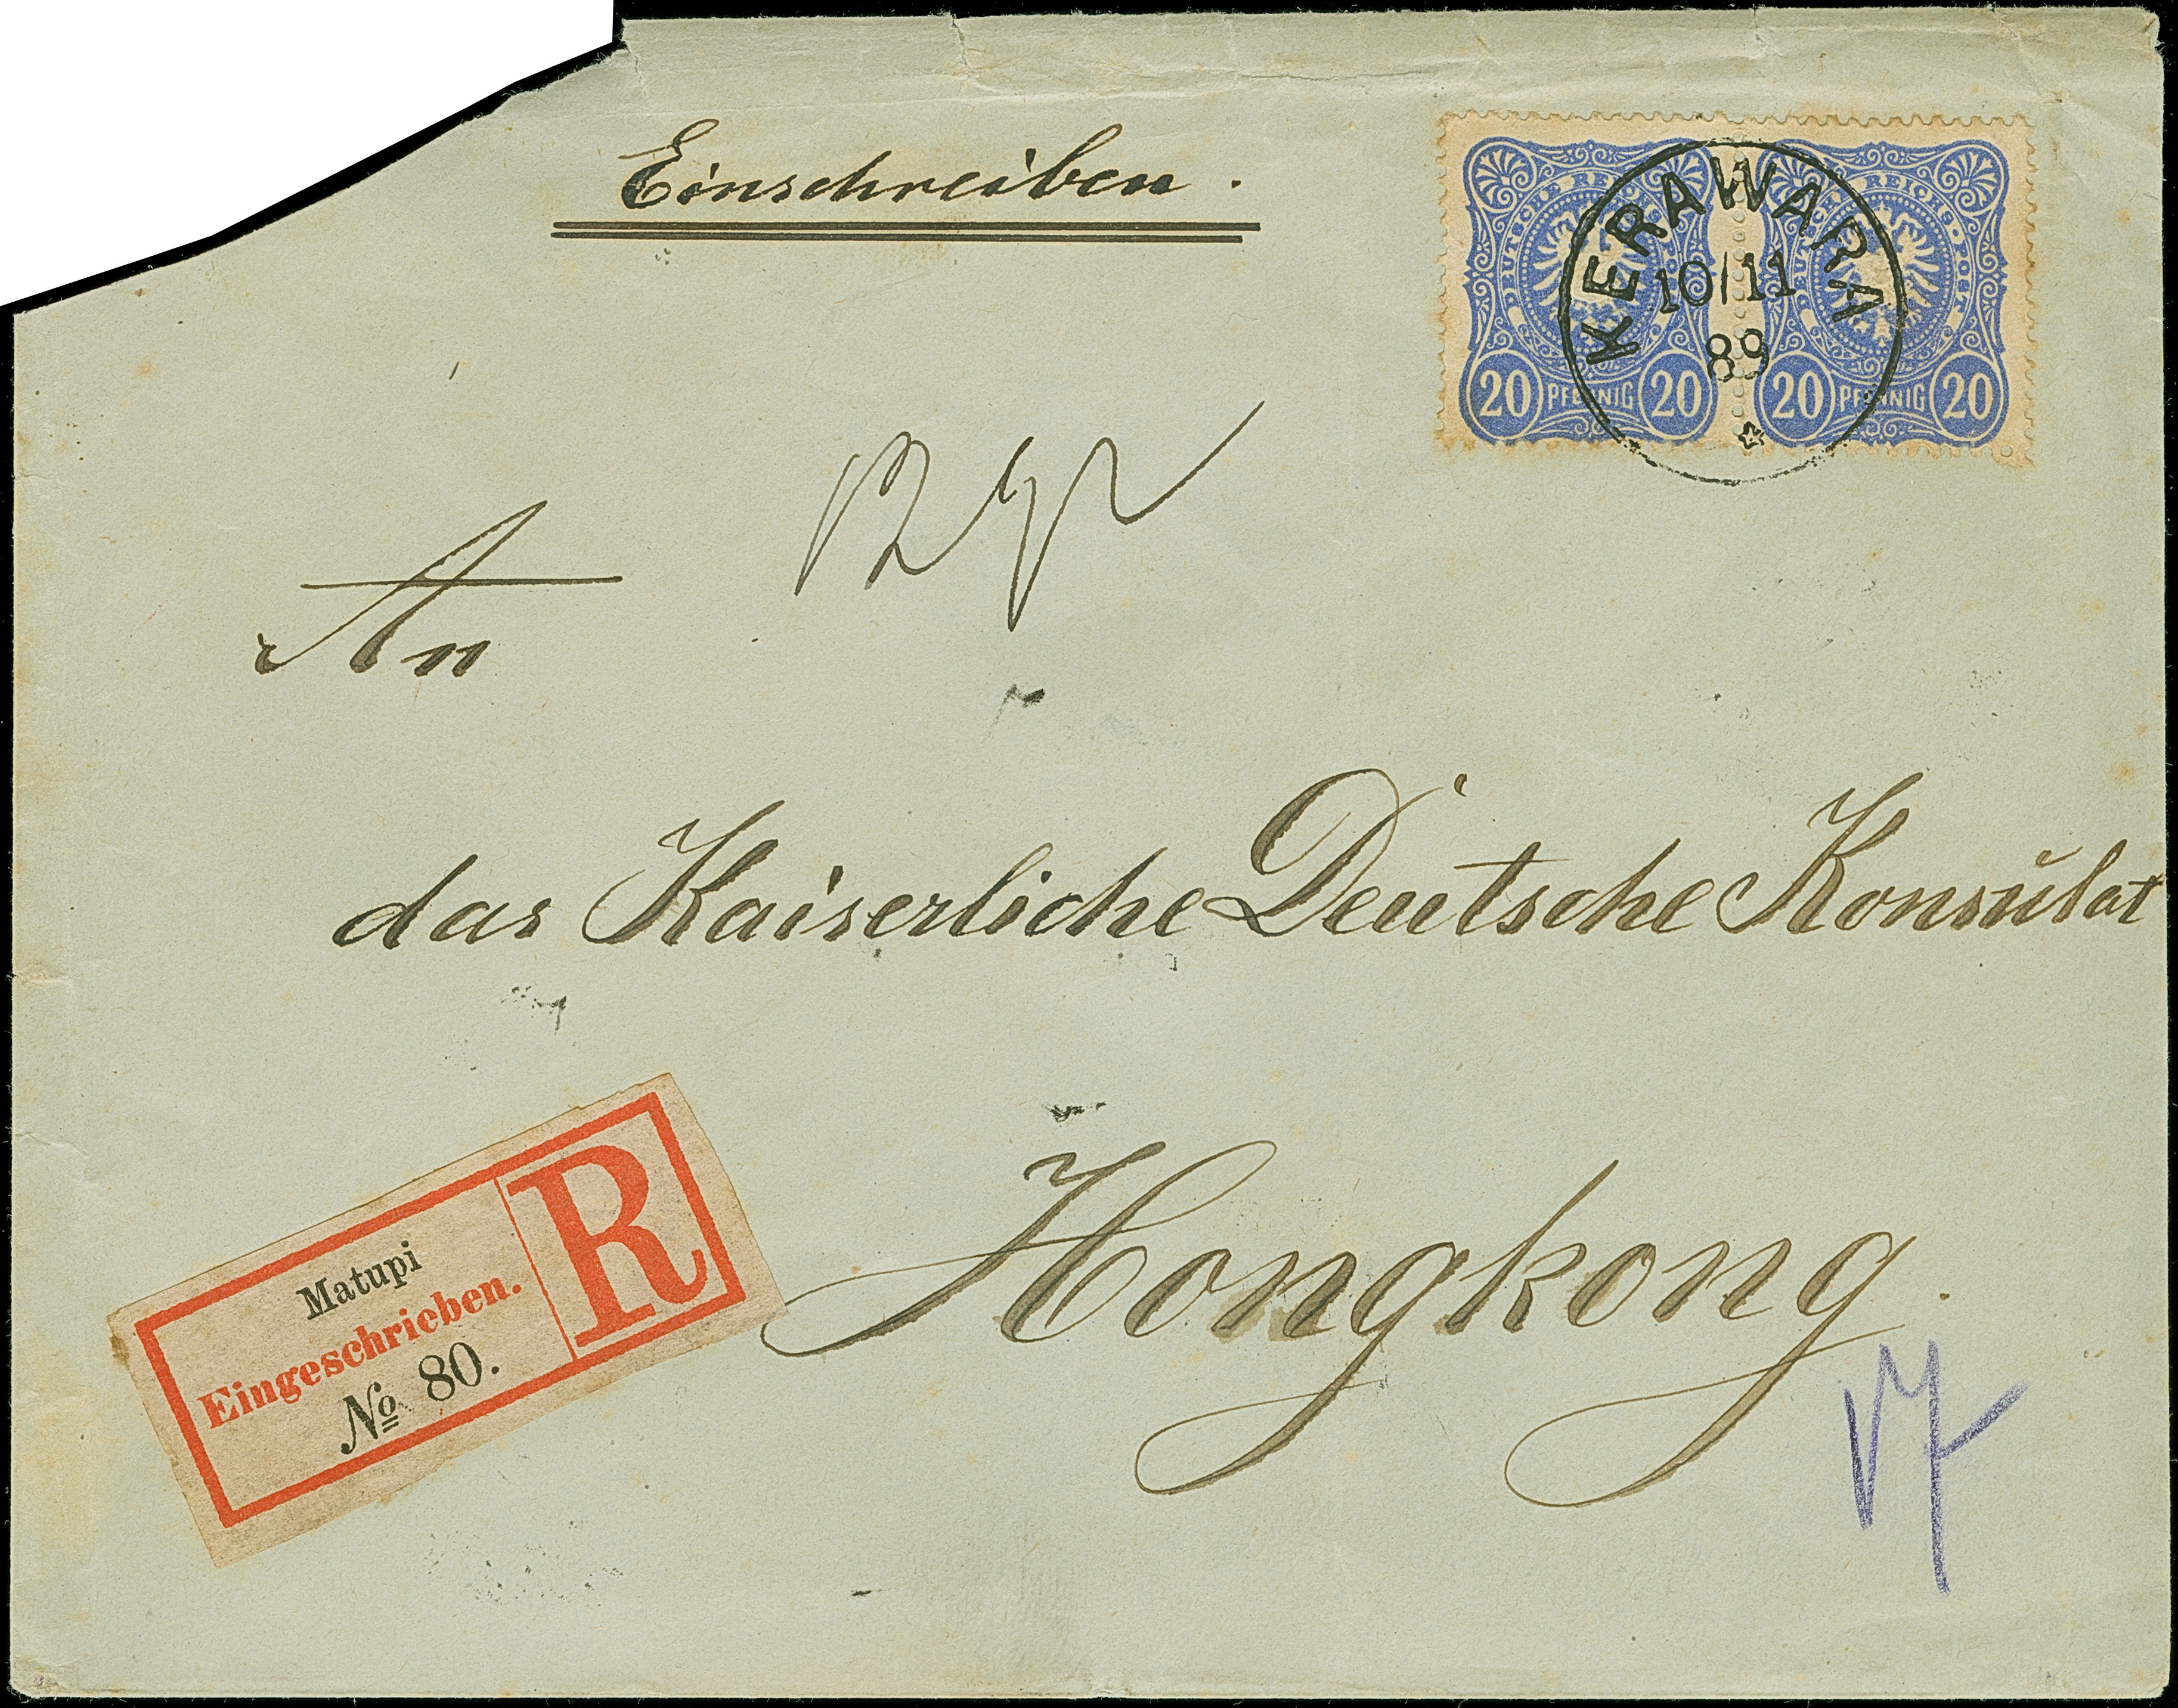 Einschreiben.
DEUTSCHE REICHSPOST
20 PFENNIG 20
20 PFENNIG 20
KERAWARA
10/11
89
An
das Kaiserliche Deutsche Konsulat
Hongkong.
Matupi
Eingeschrieben.
№ 80.
R